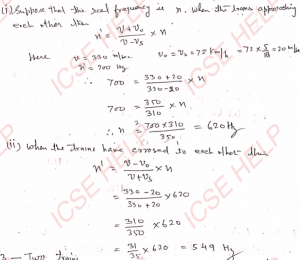 (i) Suppose that the real frequency is n. When the trains approaching
each other then
n' = v+v₀/v-vₛ × n
Here v = 330 m/s v₀ = vₛ = 72 km/h = 72 × 5/18 = 20 m/s
n' = 700 Hz
∴ 700 = 330+20/330-20 × n
700 = 350/310 × n
∴ n = 700×310/350 = 620 Hz
(ii) When the trains have crossed to each other then
n' = v-v₀/v+vₛ × n
= 330-20/330+20 × 620
= 310/350 × 620
= 31/35 × 620 = 549 Hz
ICSE HELP
ICSE HELP
ICSE HELP